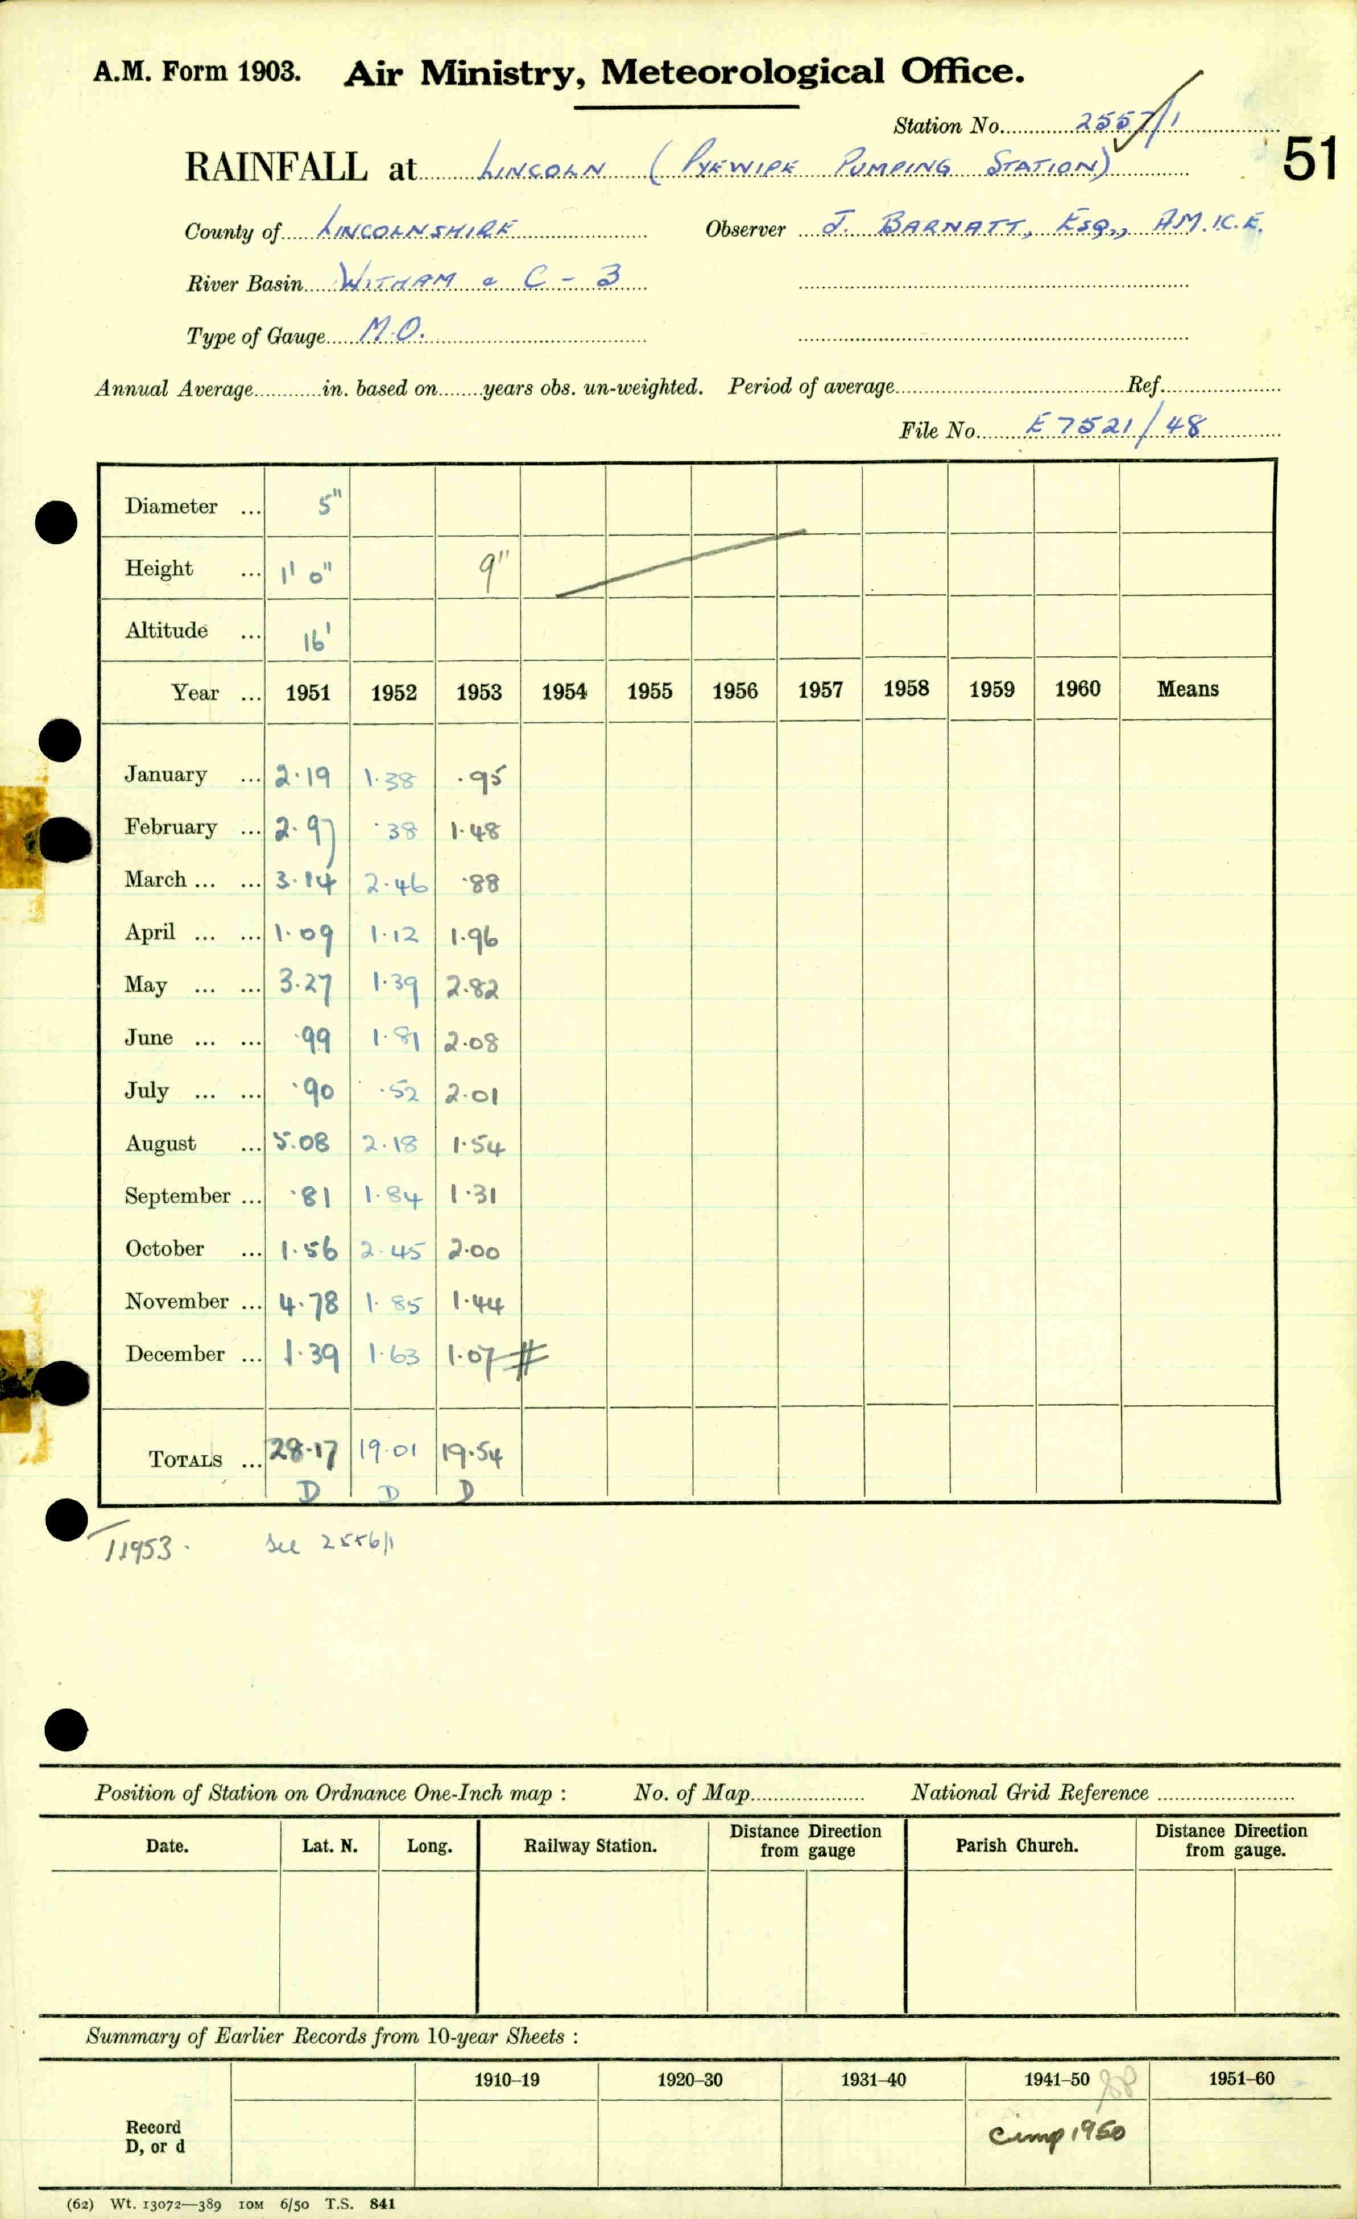 A.M. Form 1903. Air Ministry, Meteorological Office.
Station No. 2557/1
51
RAINFALL at LINCOLN (PYEWIPE PUMPING STATION)
County of LINCOLNSHIRE Observer J. BARNATT, ESQ., A.M.I.C.E.
River Basin WITHAM & C - 3
Type of Gauge M.O.
Annual Average in. based on years obs. un-weighted. Period of average Ref.
File No. E7521/48
Diameter ... 5"
Height ... 1' 0" 9"
Altitude ... 16'
Year ... 1951 1952 1953 1954 1955 1956 1957 1958 1959 1960 Means
January ... 2.19 1.38 .95
February ... 2.97 .38 1.48
March ... ... 3.14 2.46 .88
April ... ... 1.09 1.12 1.96
May ... ... 3.27 1.39 2.82
June ... ... .99 1.81 2.08
July ... ... .90 .52 2.01
August ... 5.08 2.18 1.54
September ... .81 1.84 1.31
October ... 1.56 2.45 2.00
November ... 4.78 1.85 1.44
December ... 1.39 1.63 1.07 #
TOTALS ... 28.17 19.01 19.54
D D D
1953. See 2556/1
Position of Station on Ordnance One-Inch map : No. of Map National Grid Reference
Date. Lat. N. Long. Railway Station. Distance from Direction gauge Parish Church. Distance from Direction gauge.
Summary of Earlier Records from 10-year Sheets :
1910–19 1920–30 1931–40 1941–50 1951–60
Record
D, or d
1950
(62) Wt. 13072—389 10M 6/50 T.S. 841